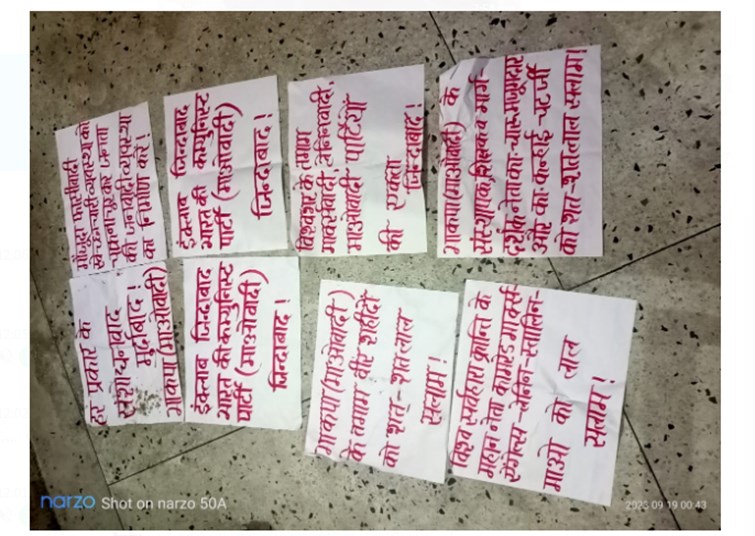 मौजूदा फासीवादी
स्वेच्छाचारी व्यवस्था को
चकनाचूर कर जनता
की जनवादी व्यवस्था
का निर्माण करें!
इंक्लाब जिन्दाबाद
भारत की कम्युनिस्ट
पार्टी (माओवादी)
जिन्दाबाद!
विश्वभर के तमाम
मार्क्सवादी लेनिनवादी
माओवादी पार्टियों
की एकता
जिन्दाबाद!
भाकपा (माओवादी) के
संस्थापक, शिक्षक व मार्ग-
दर्शक नेता का. चारू मजूमदार
और का. कन्हाई चटर्जी
को शत-शत लाल सलाम!
हर प्रकार के
संशोधनवाद
मुर्दाबाद!
भाकपा (माओवादी)
इंक्लाब जिन्दाबाद
भारत की कम्युनिस्ट
पार्टी (माओवादी)
जिन्दाबाद!
भाकपा (माओवादी)
के तमाम वीर शहीदों
को शत्-शत् लाल
सलाम!
विश्व सर्वहारा क्रान्ति के
महान नेता कामरेड मार्क्स-
एंगेल्स-लेनिन-स्तालिन-
माओ को लाल
सलाम!
narzo Shot on narzo 50A
2023 09 19 00:43